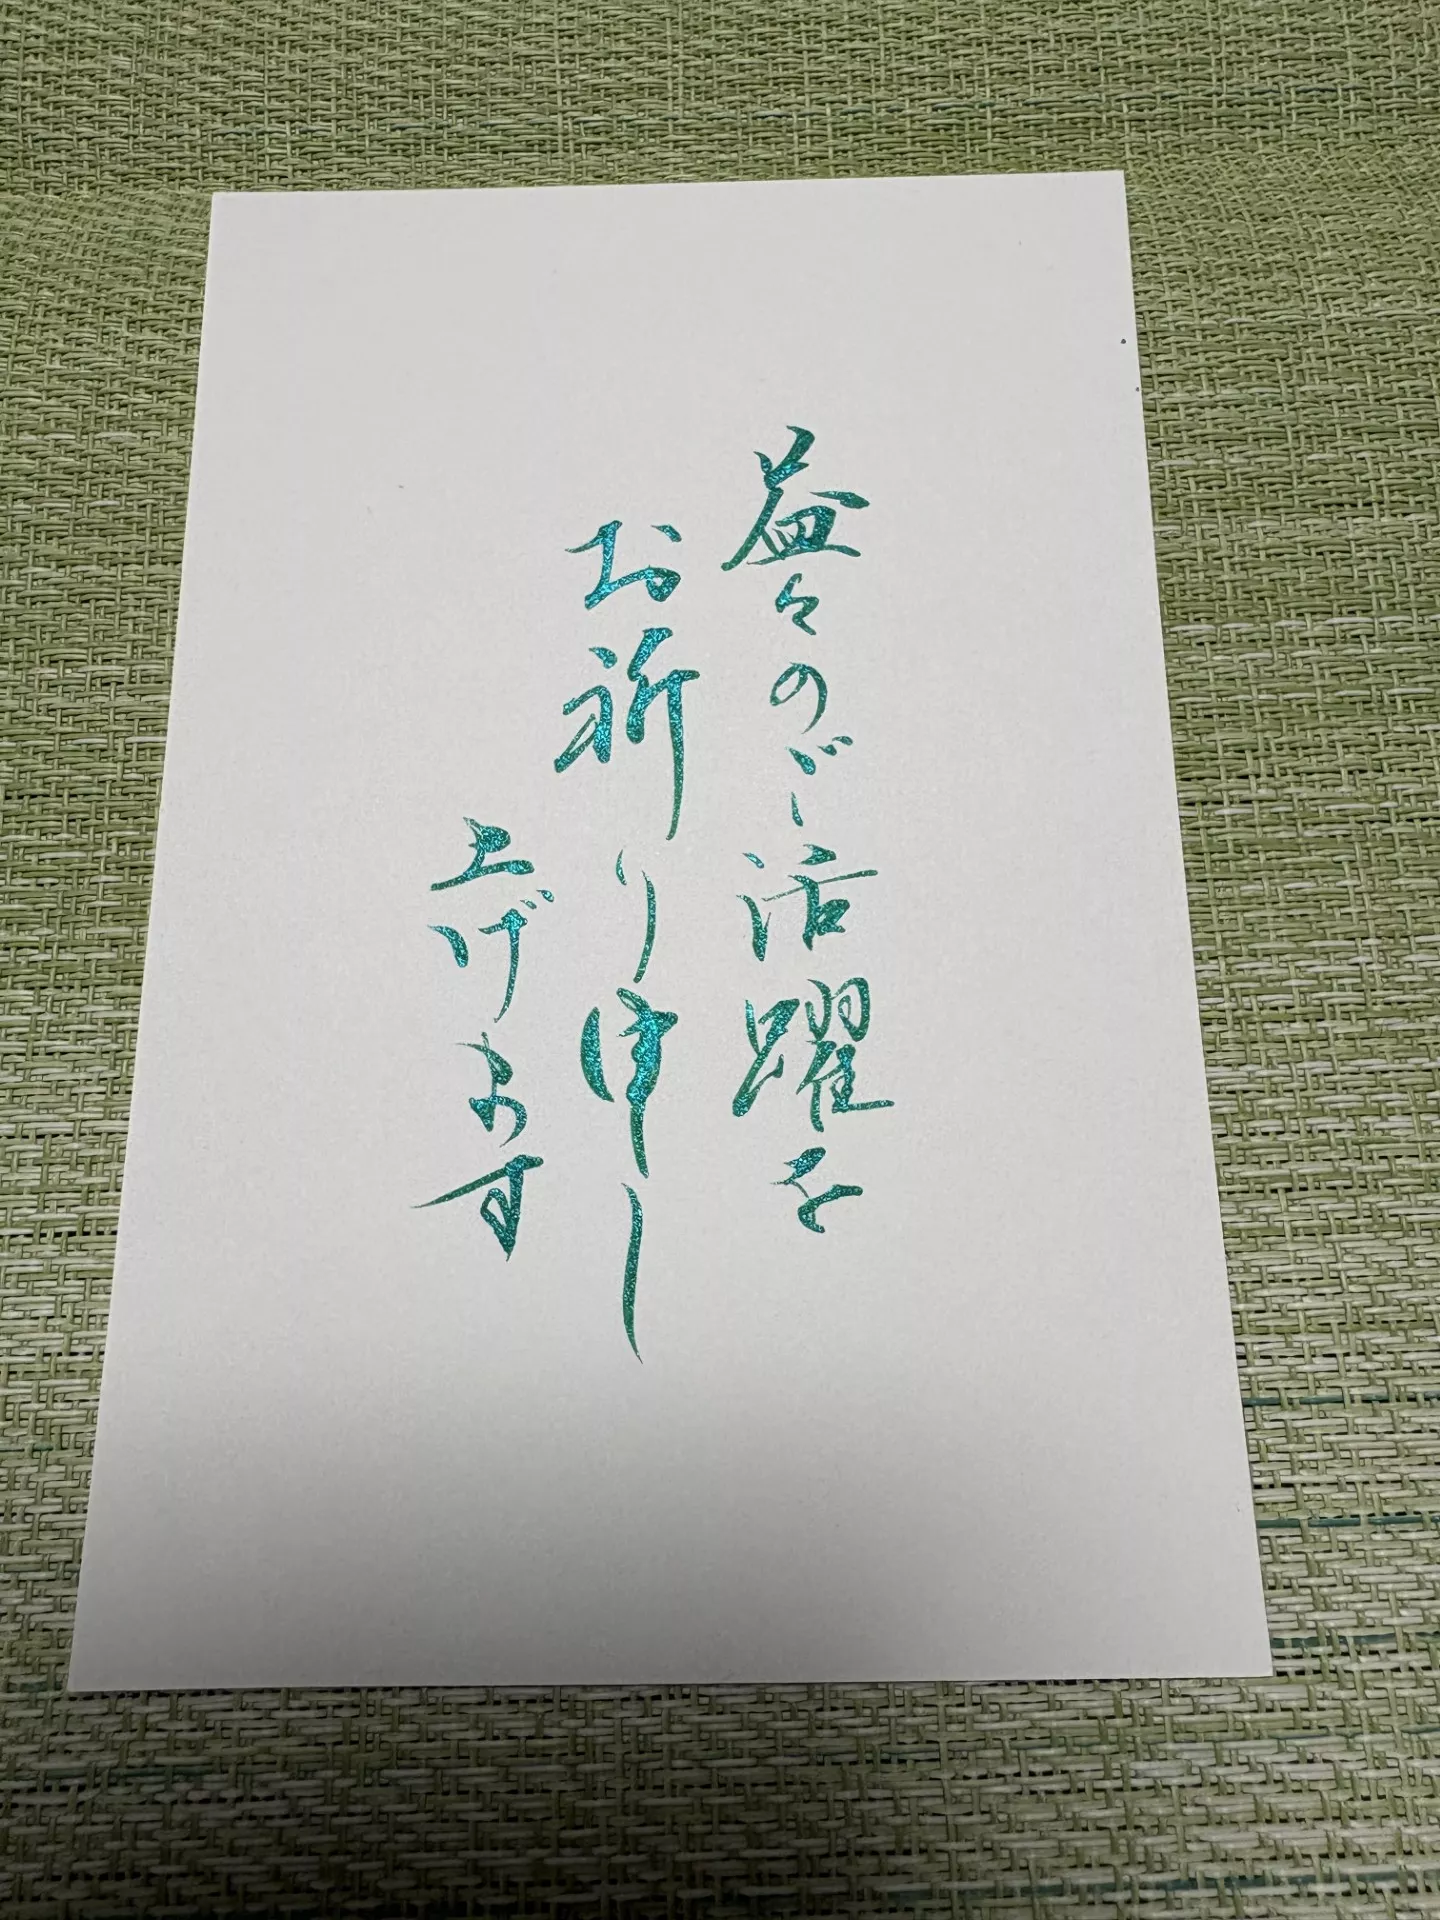 益々のご活躍を
お祈り申し
上げます